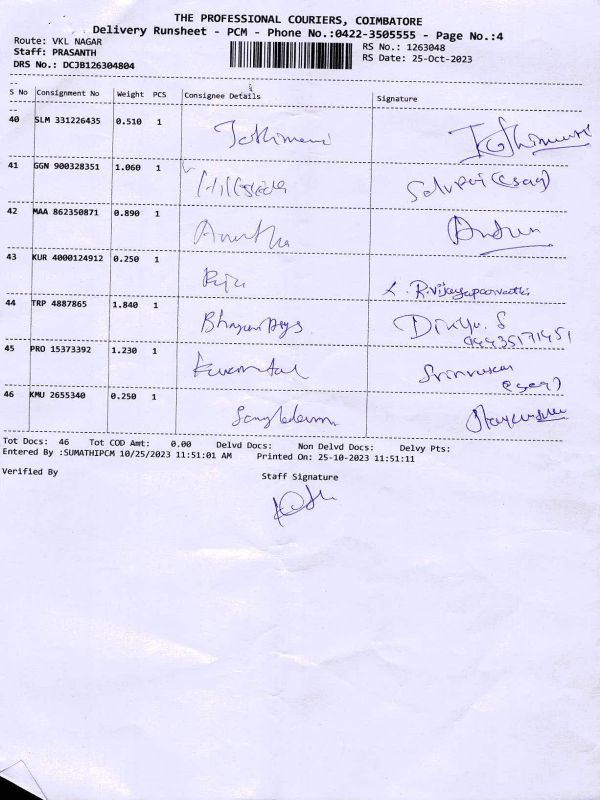 THE PROFESSIONAL COURIERS, COIMBATORE
Delivery Runsheet - PCM - Phone No.:0422-3505555 - Page No.:4
Route: VKL NAGAR RS No.: 1263048
Staff: PRASANTH RS Date: 25-Oct-2023
DRS No.: DCJB126304804
S No Consignment No Weight PCS Consignee Details Signature
40 SLM 331226435 0.510 1 Jothimani
41 GGN 900328351 1.060 1
42 MAA 862350871 0.890 1
43 KUR 4000124912 0.250 1 R.Vijayaparvathi
44 TRP 4887865 1.840 1 Divya. S
94435171451
45 PRO 15373392 1.230 1
46 KMU 2655340 0.250 1
Tot Docs: 46 Tot COD Amt: 0.00 Delvd Docs: Non Delvd Docs: Delvy Pts:
Entered By :SUMATHIPCM 10/25/2023 11:51:01 AM Printed On: 25-10-2023 11:51:11
Verified By Staff Signature